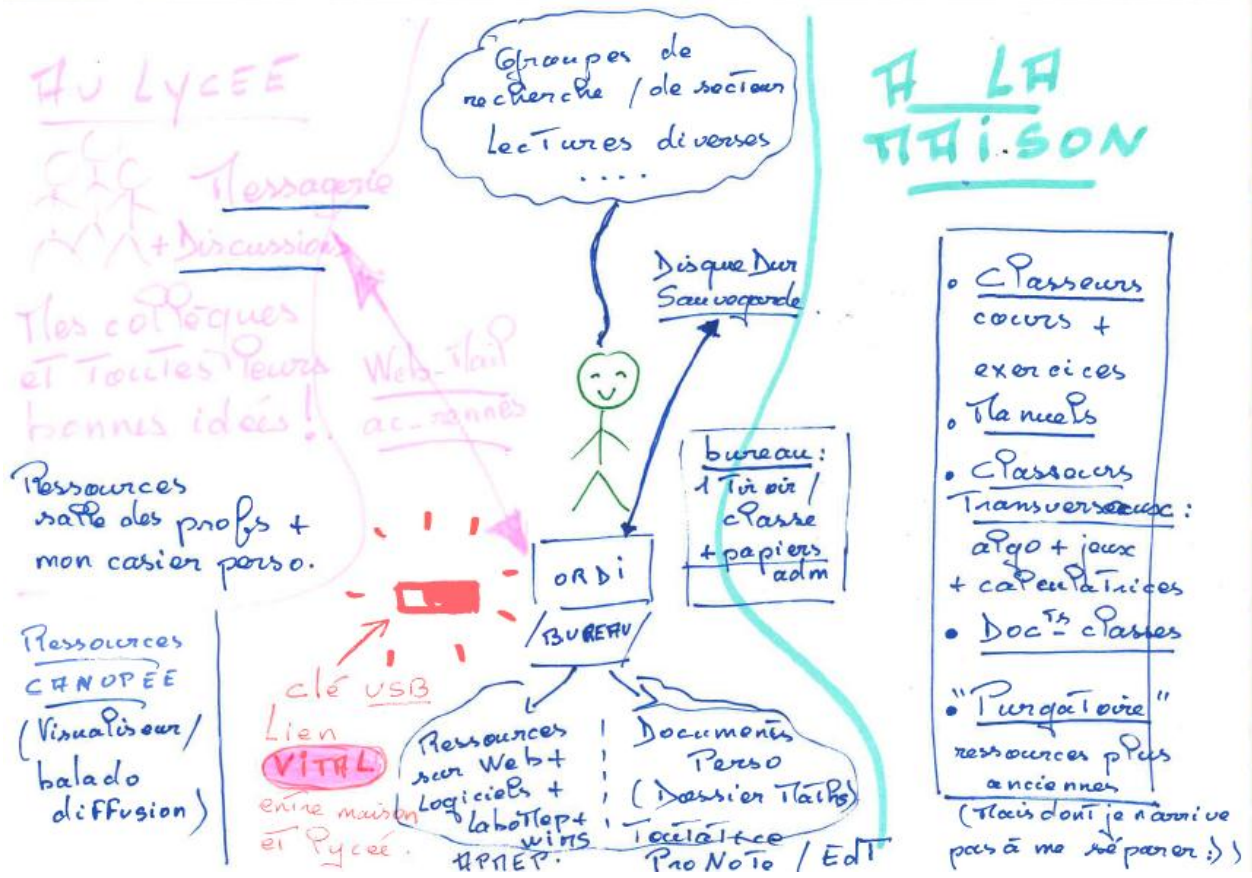 AU LYCEE
Messagerie
+ Discussions
Mes collègues
et toutes leurs
bonnes idées !
Web-Mail
ac-rennes
Ressources
salle des profs +
mon casier perso.
Ressources
CANOPEE
(Visualiseur /
balado
diffusion)
Groupes de
recherche / de secteur
Lectures diverses
....
Disque Dur
Sauvegarde
ORDI
BUREAU
bureau :
1 Tiroir /
classe
+ papiers
adm
clé USB
Lien
VITAL
entre maison
et lycée.
Ressources
sur Web +
Logiciels +
LaboMep +
wims
APMEP.
Documents
Perso
(Dossier Maths)
Toutatice
ProNote / EdT
A LA
MAISON
• Classeurs
cours +
exercices
• Manuels
• Classeurs
Transversaux :
algo + jeux
+ calculatrices
• Docts classes
• "Purgatoire"
ressources plus
anciennes
(Mais dont je n'arrive
pas à me séparer :))